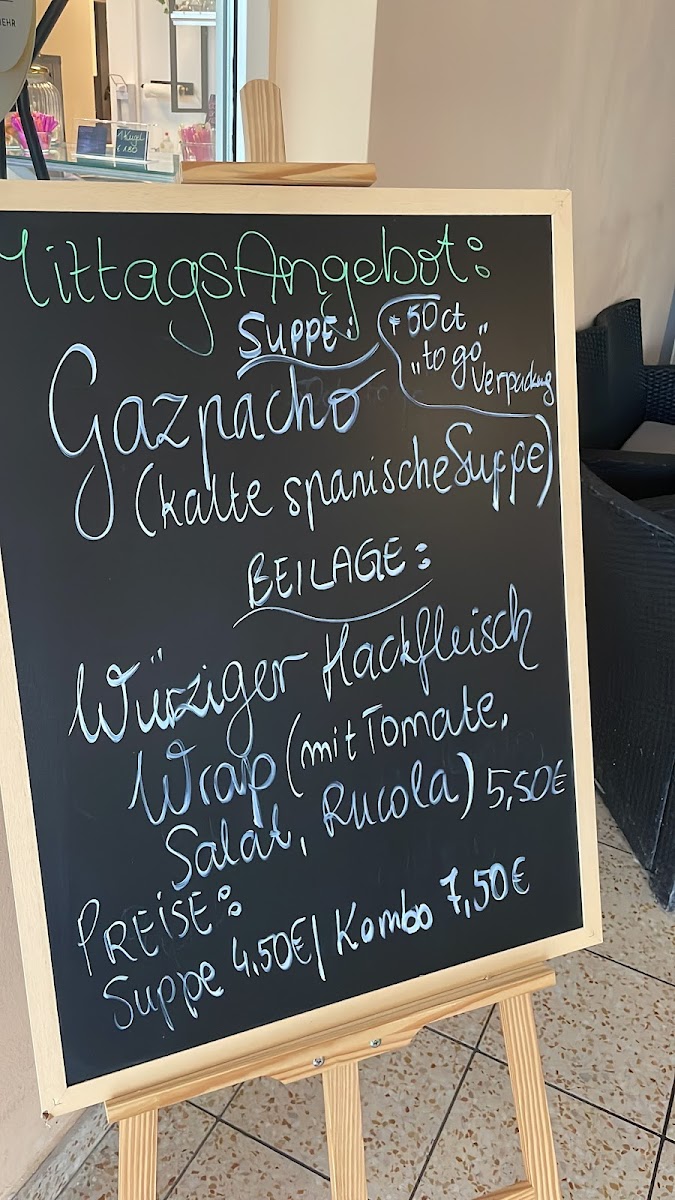 EHR
1 Kugel
MittagsAngebot:
Suppe:
+ 50ct
„to go“
Verpackung
Gazpacho
(kalte spanische Suppe)
BEILAGE:
Würziger Hackfleisch
Wrap (mit Tomate,
Salat, Rucola) 5,50€
PREISE:
Suppe 4.50€/ Kombo 7,50€